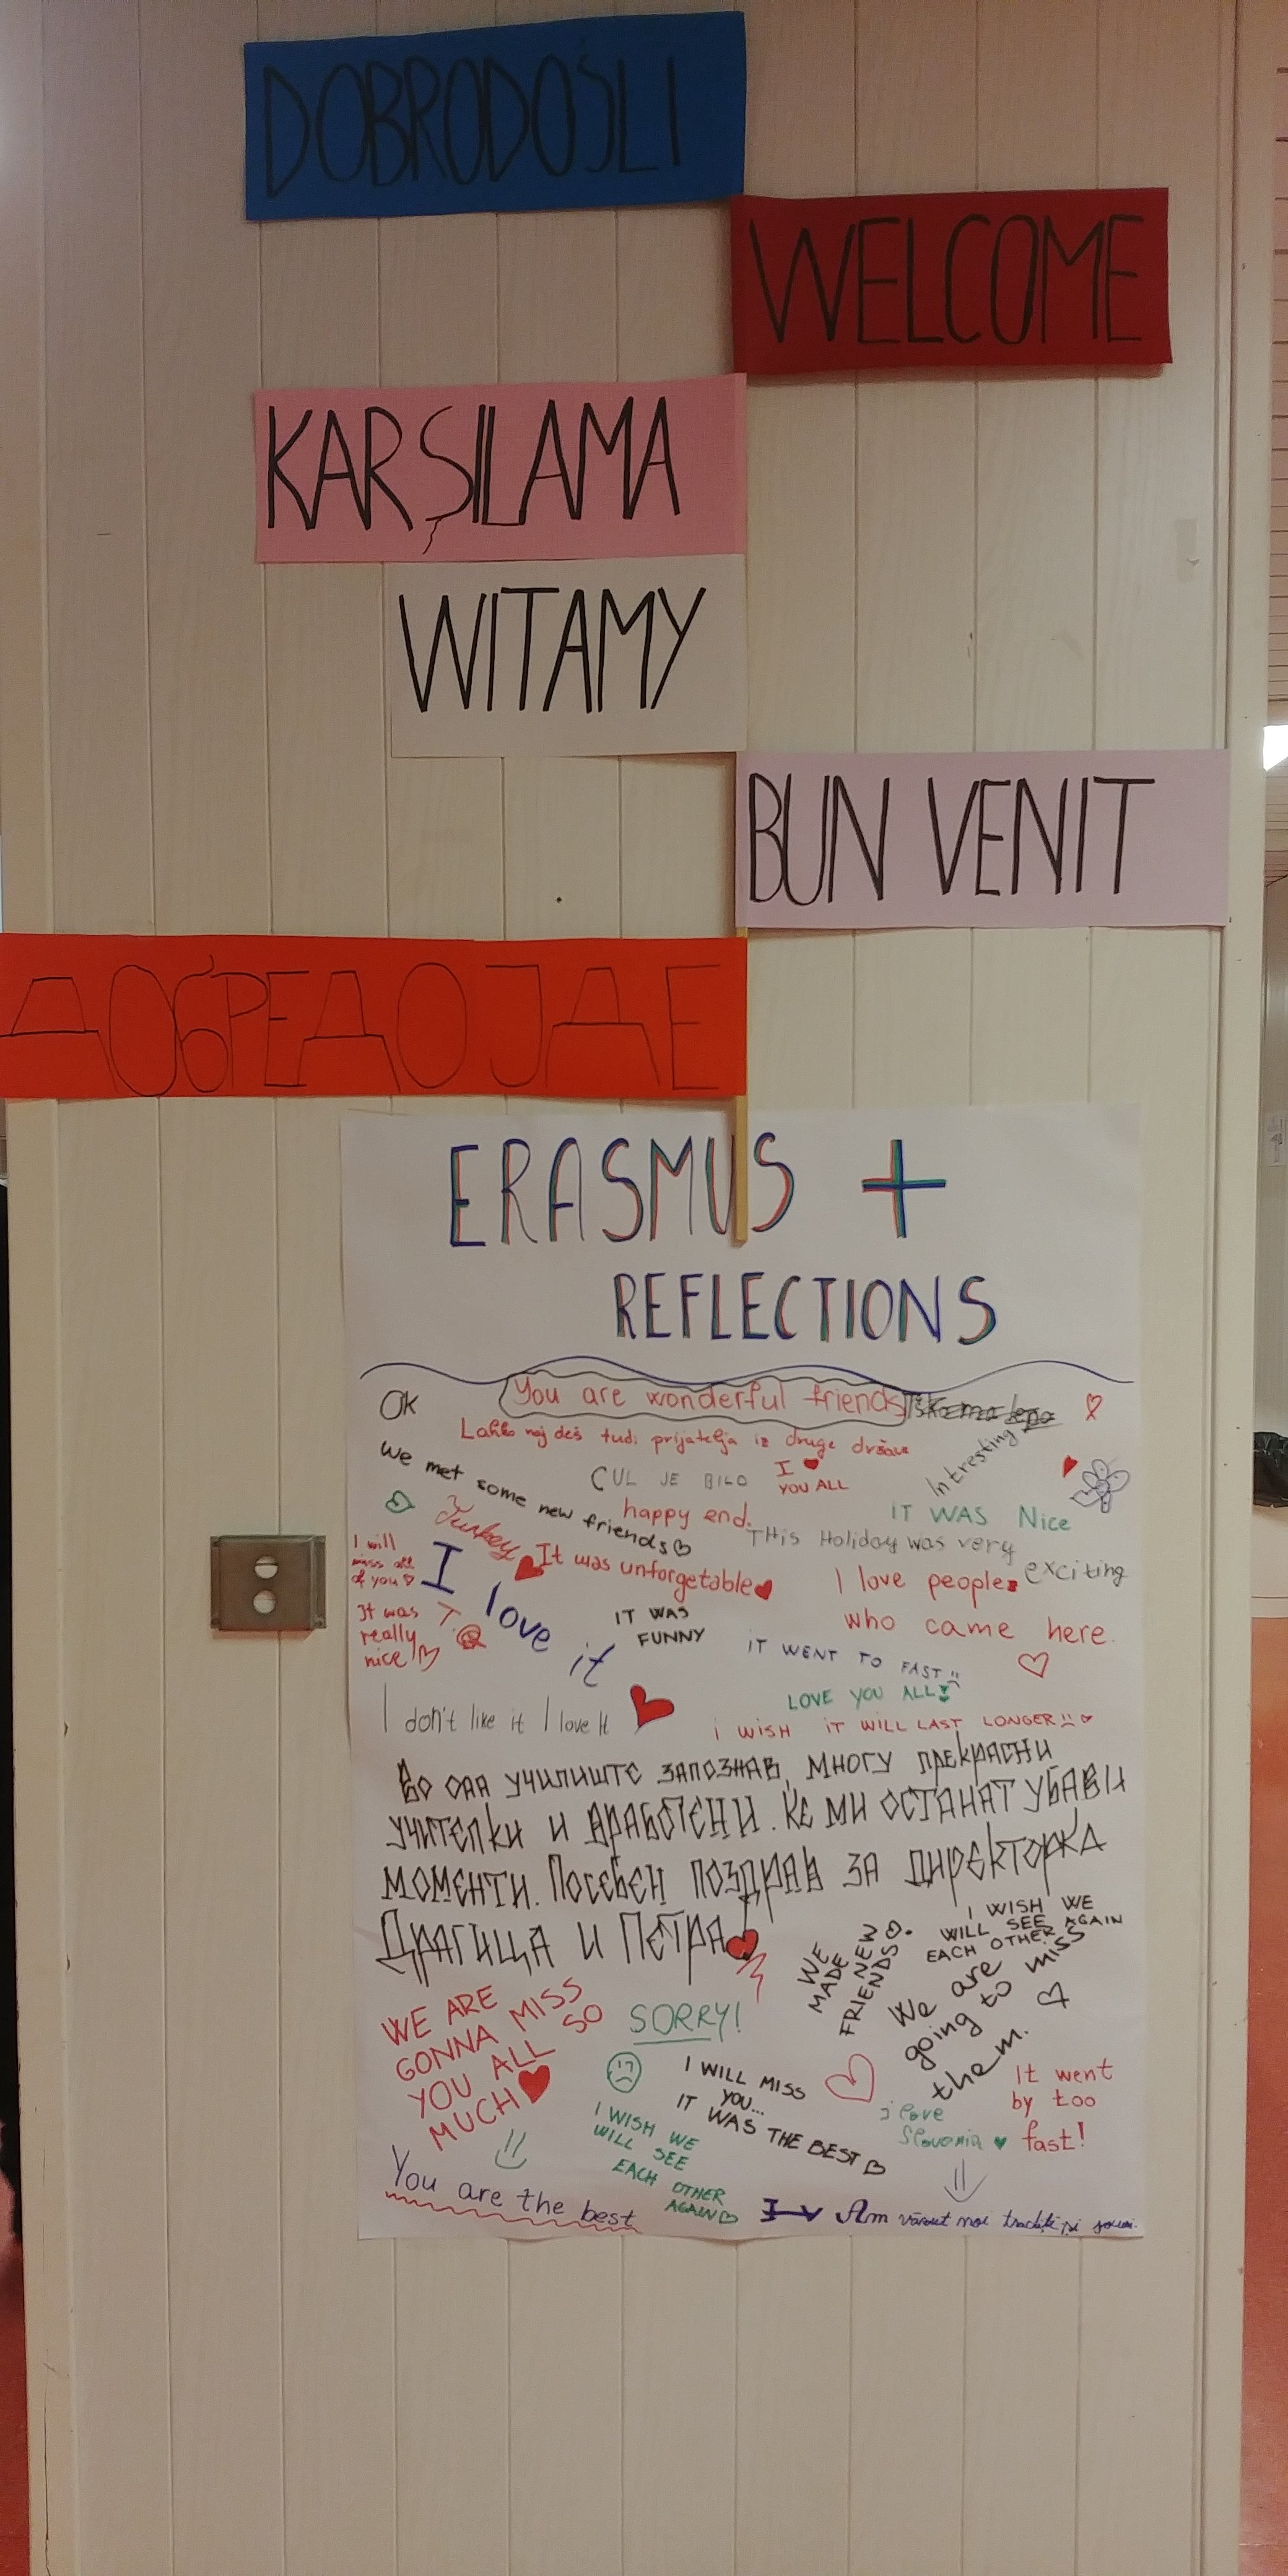 DOBRODOŠLI
WELCOME
KARŞILAMA
WITAMY
BUN VENIT
ДОБРЕДОЈДЕ
ERASMUS +
REFLECTIONS
Ok
You are wonderful friends
Lahko najdeš tudi prijatelja iz druge države
We met some new friends
CUL JE BILO
I ❤ YOU ALL
Intresting
happy end.
IT WAS Nice
Turkey
THis Holiday was very exciting
I will
miss all
of you
I love it
It was unforgetable
I love people
who came here.
It was
really
nice!
IT WAS
FUNNY
IT WENT TO FAST
LOVE YOU ALL
I don't like it I love It
i WISH IT WILL LAST LONGER
Во оаа училиште запознав, многу прекрасни
учителки и вработени. Ќе ми останат убави
моменти. Посебен поздрав за директорка
Драгица и Петра!
I WISH WE
WILL SEE
EACH OTHER AGAIN
WE
MADE NEW
FRIENDS
We are
going to miss
them.
WE ARE
GONNA MISS
YOU ALL SO
MUCH
SORRY!
I WILL MISS
YOU...
IT WAS THE BEST
It went
by too
fast!
i love
Slovenia
I WISH WE
WILL SEE
EACH OTHER
AGAIN
You are the best
Am văzut noi